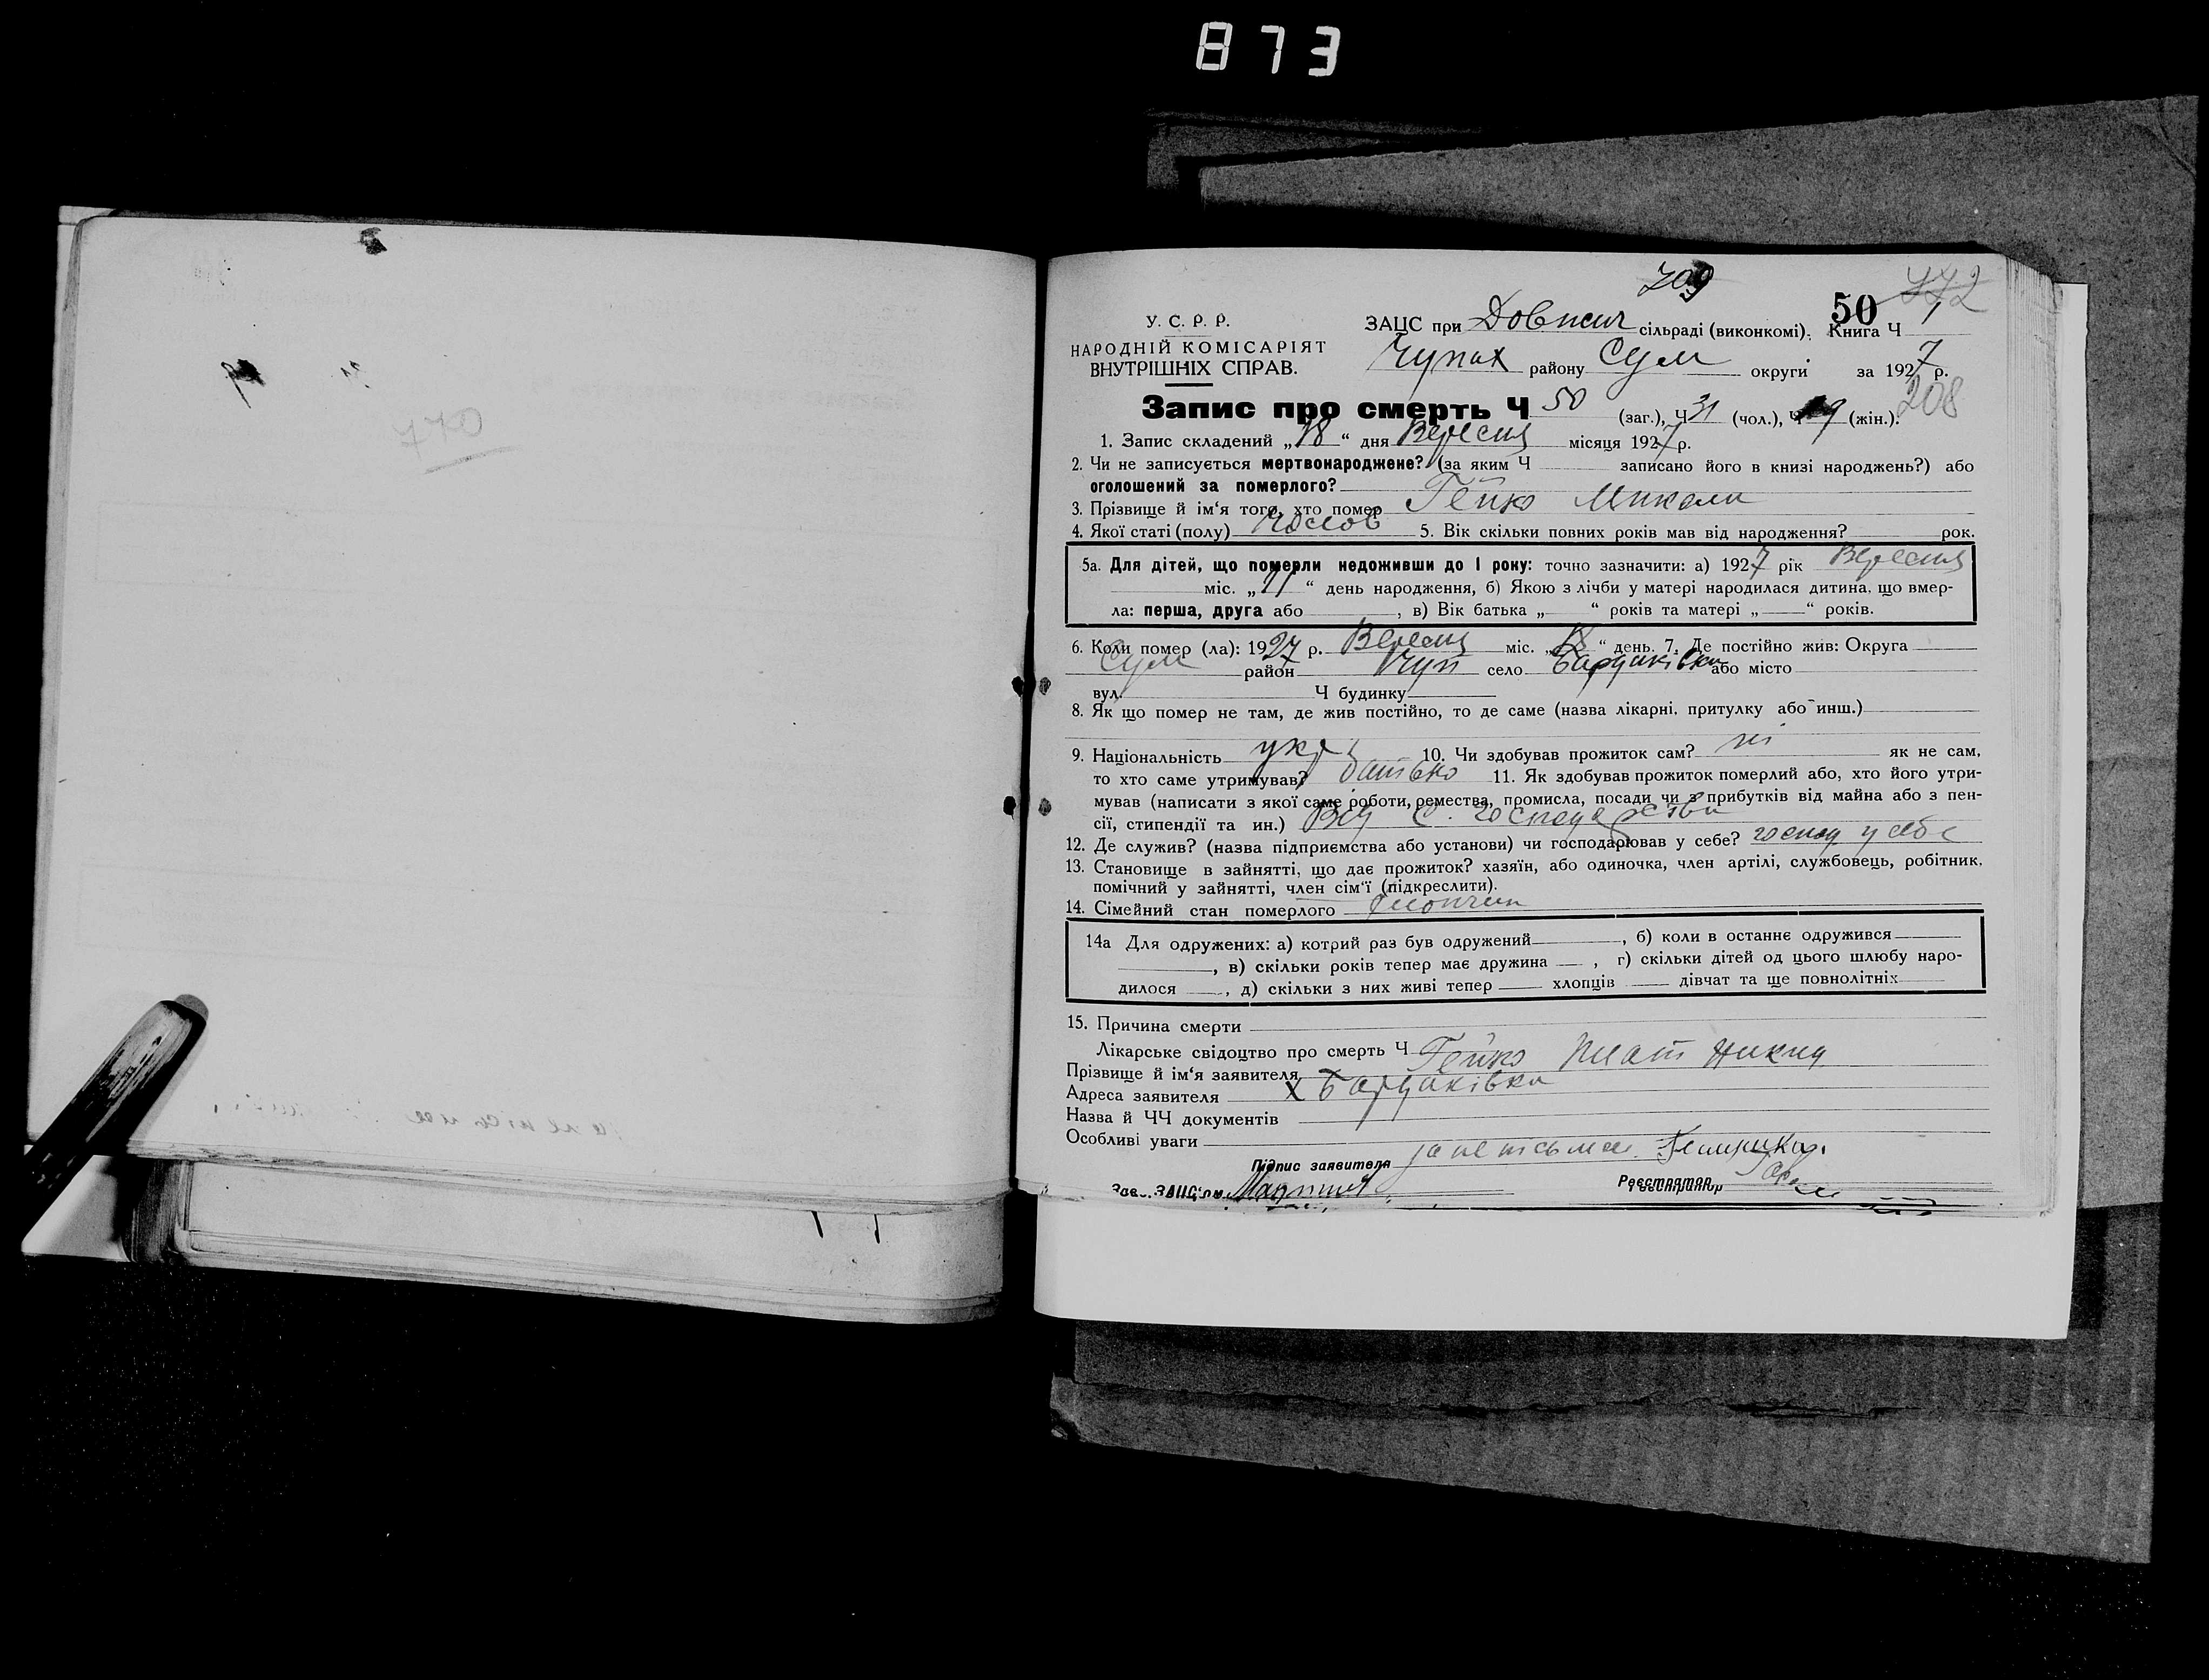 873
709
50 442
У. С. Р. Р.
НАРОДНІЙ КОМІСАРІЯТ
ВНУТРІШНІХ СПРАВ.
ЗАЦС при Довжич сільраді (виконкомі). Книга Ч 1
Чупах району Сум округи за 1927 р.
208
Запис про смерть Ч 50 (заг.), Ч 31 (чол.), Ч 19 (жін.).
1. Запис складений „18“ дня Вересня місяця 1927 р.
2. Чи не записується мертвонароджене? (за яким Ч записано його в книзі народжень?) або
оголошений за померлого?
3. Прізвище й ім‘я того, хто помер Гейко Микола
4. Якої статі (полу) Чолов 5. Вік скільки повних років мав від народження? рок.
5а. Для дітей, що померли недоживши до 1 року: точно зазначити: а) 1927 рік Вересня
міс. „11“ день народження, б) Якою з лічби у матері народилася дитина, що вмер-
ла: перша, друга або , в) Вік батька „ “ років та матері „ “ років.
6. Коли помер (ла): 1927 р. Вересня міс. „18“ день. 7. Де постійно жив: Округа
Сум район Чуп село Бардаківка або місто
вул. Ч будинку
8. Як що помер не там, де жив постійно, то де саме (назва лікарні, притулку або инш.)
9. Національність укр 10. Чи здобував прожиток сам? ні як не сам,
то хто саме утримував? батько 11. Як здобував прожиток померлий або, хто його утри-
мував (написати з якої саме роботи, ремества, промисла, посади чи з прибутків від майна або з пен-
сії, стипендії та ин.) Від С. господарства
12. Де служив? (назва підприємства або установи) чи господарював у себе? господ у себе
13. Становище в зайнятті, що дає прожиток? хазяїн, або одиночка, член артілі, службовець, робітник,
помічний у зайнятті, член сім‘ї (підкреслити).
14. Сімейний стан померлого
14а Для одружених: а) котрий раз був одружений , б) коли в останнє одружився
, в) скільки років тепер має дружина , г) скільки дітей од цього шлюбу наро-
дилося , д) скільки з них живі тепер хлопців дівчат та ще повнолітніх
15. Причина смерти
Лікарське свідоцтво про смерть Ч
Прізвище й ім‘я заявителя Гейко
Адреса заявителя х Бардаківка
Назва й ЧЧ документів
Особливі уваги
Підпис заявителя
Зав. ЗАЦС‘ом Реєстратор